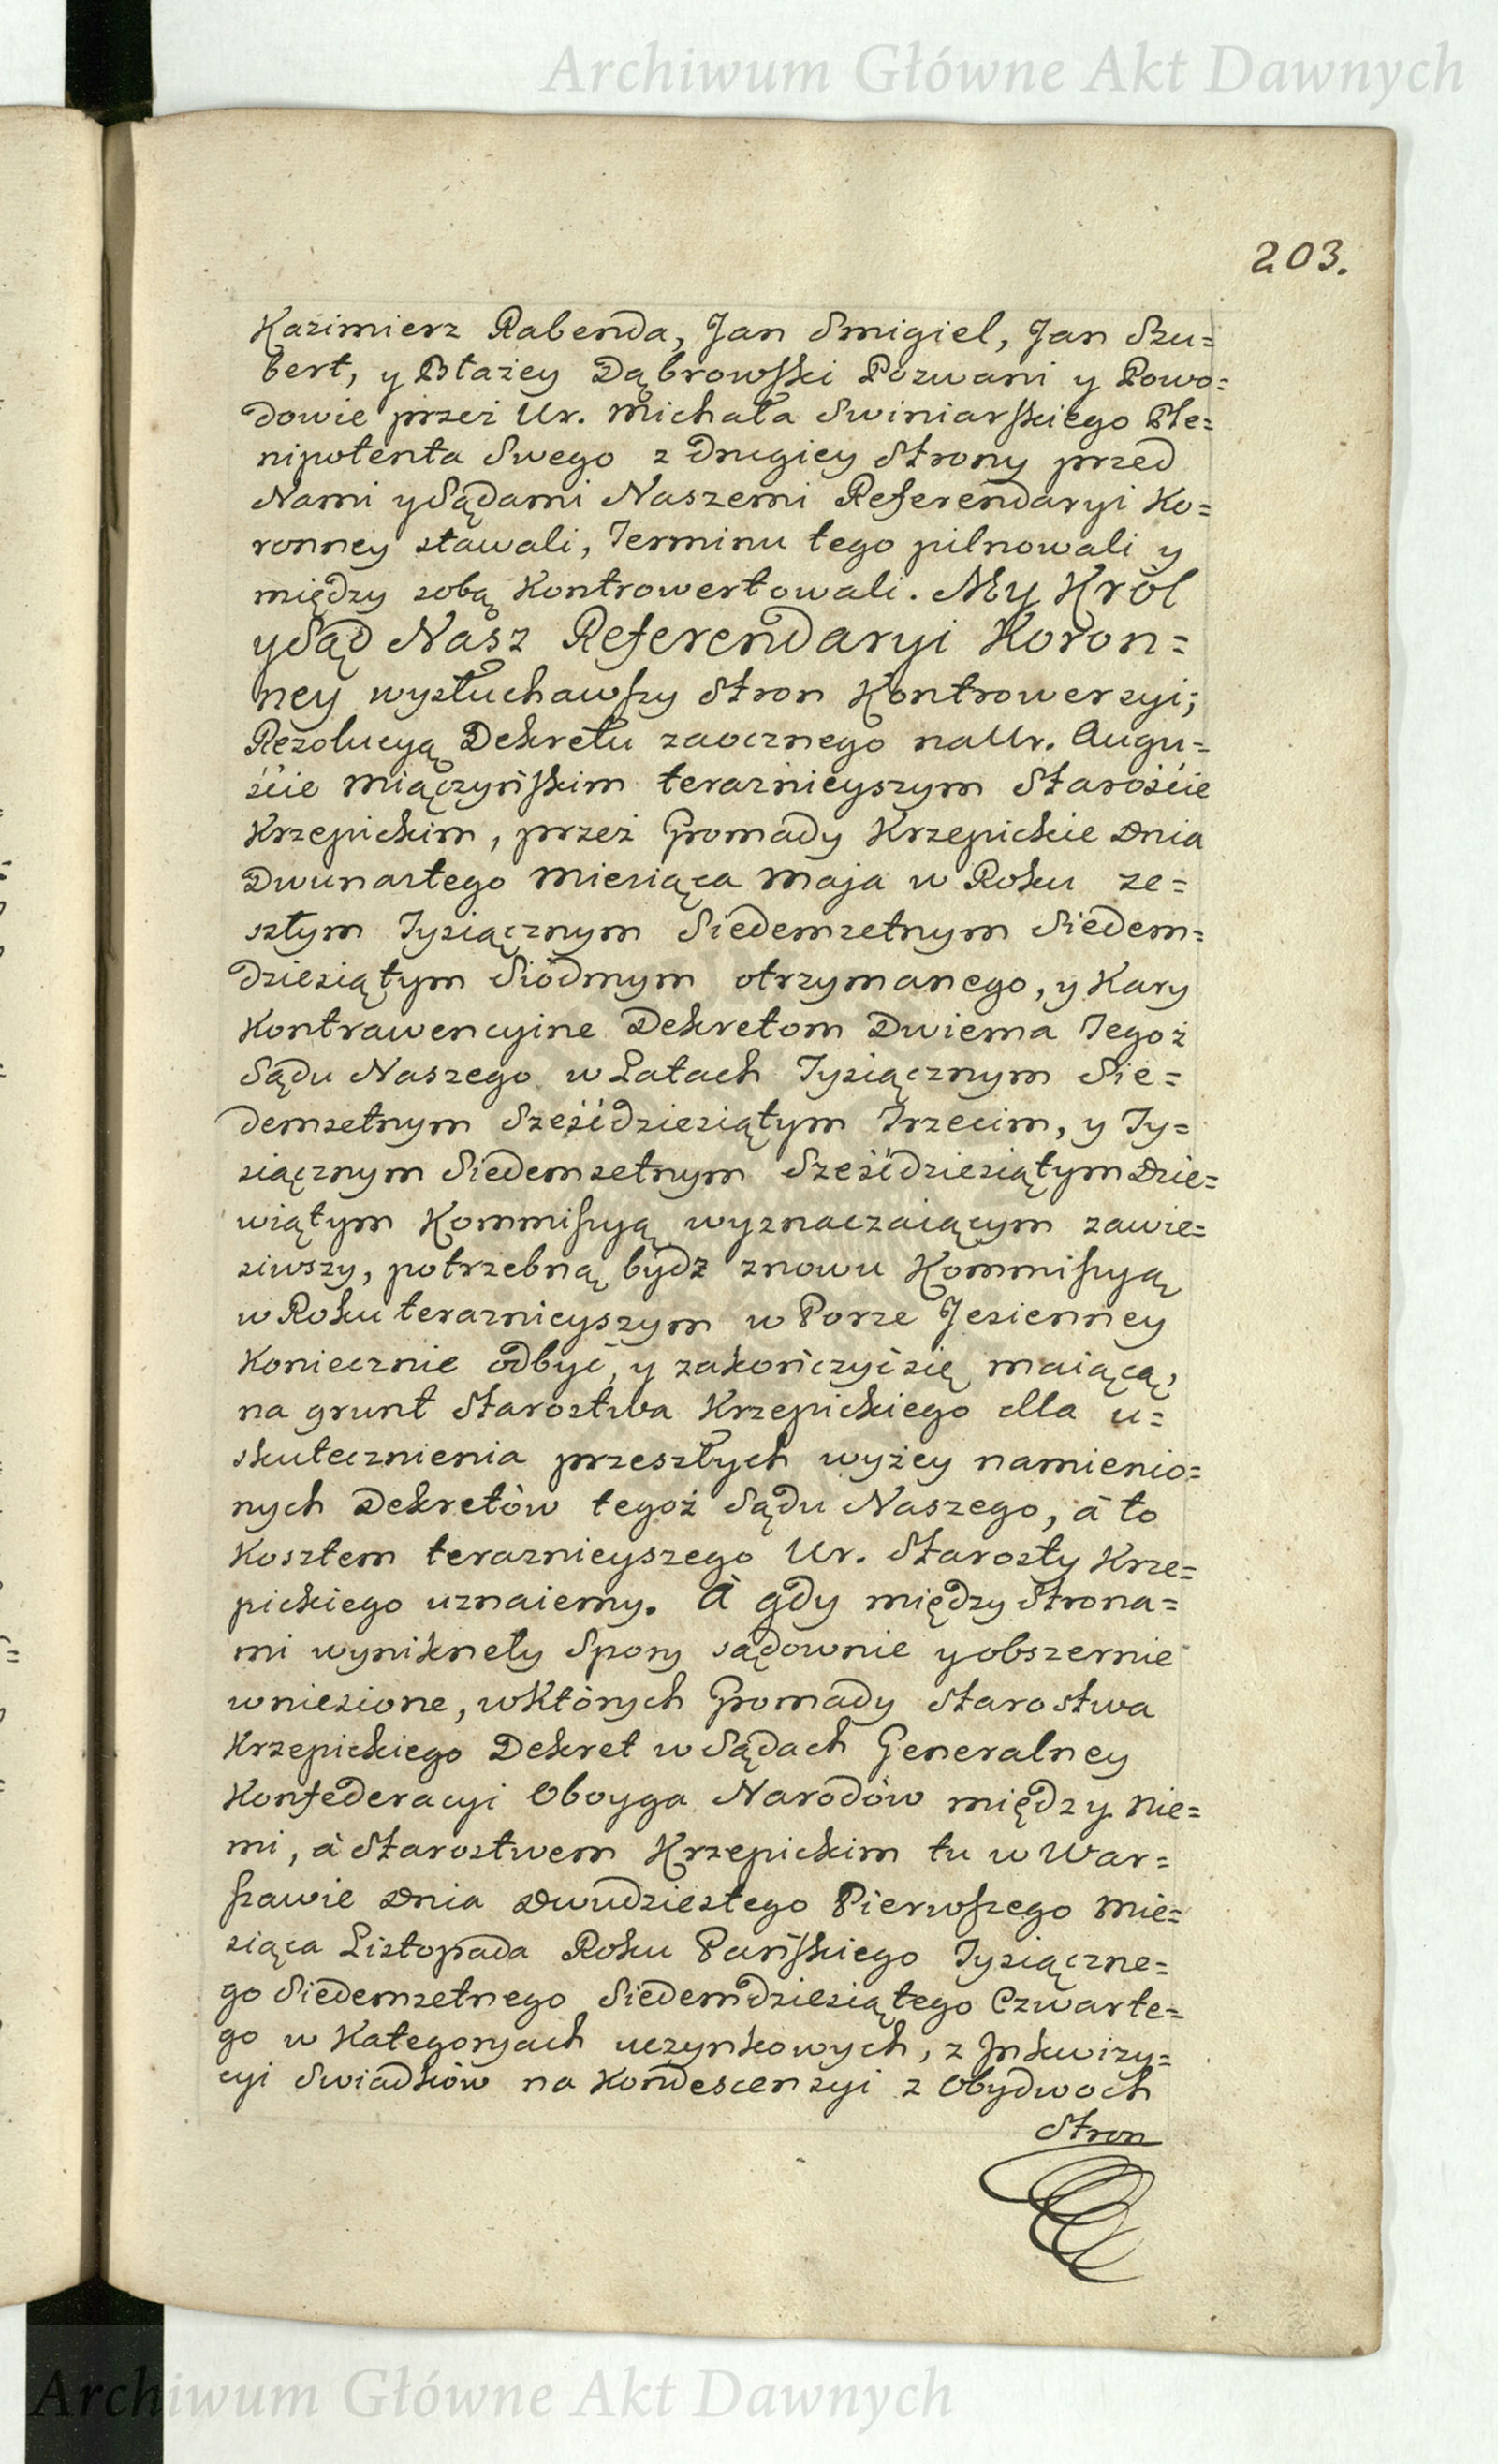 Archiwum Główne Akt Dawnych
203.
Kazimierz Rabenda, Jan Smigiel, Jan Szu=
bert, y Błażey Dąbrowski Pozwani y Powo=
dowie przez Ur. Michała Swiniarskiego Ple=
nipotenta Swego z drugiey Strony przed
Nami y Sądami Naszemi Referendaryi Ko=
ronney stawali, Terminu tego pilnowali y
między sobą Kontrowertowali. My Król
y Sąd Nasz Referendaryi Koron=
ney wysłuchawszy Stron Kontrowersyi;
Rezolucyą Dekretu zaocznego na Ur. Augu=
ście Miączyńskim teraznieyszym Starościе
Krzepickim, przez Gromady Krzepickie Dnia
Dwunastego Miesiąca Maja w Roku ze=
szłym Tysiącznym Siedemsetnym Siedem=
dziesiątym Siódmym otrzymanego, y Kary
Kontrawencyine Dekretom Dwiema Tegoż
Sądu Naszego w Latach Tysiącznym Sie=
demsetnym Sześćdziesiątym Trzecim, y Ty=
siącznym Siedemsetnym Sześćdziesiątym Dzie=
wiątym Kommissyą wyznaczaiącym zawie=
siwszy, potrzebną bydź znowu Kommissyą
w Roku teraznieyszym w Porze Jesienney
Koniecznie odbyć, y zakończyć się maiącą,
na grunt Starostwa Krzepickiego dla u=
skutecznienia przeszłych wyżey namienio=
nych Dekretów tegoż Sądu Naszego, à to
Kosztem teraznieyszego Ur. Starosty Krze=
pickiego uznaiemy. A gdy między Strona=
mi wyniknęły Spory sądownie y obszernie
wniesione, w Których Gromady Starostwa
Krzepickiego Dekret w Sądach Generalney
Konfederacyi Oboyga Narodów między Nie=
mi, à Starostwem Krzepickim tu w War=
szawie Dnia Dwudziestego Pierwszego Mie=
siąca Listopada Roku Pańskiego Tysiączne=
go Siedemsetnego Siedemdziesiątego Czwarte=
go w Kategoryach uczynkowych, z Inkwizy=
cyi Swiadków na Kondescensyi z Obydwoch
Stron
Archiwum Główne Akt Dawnych